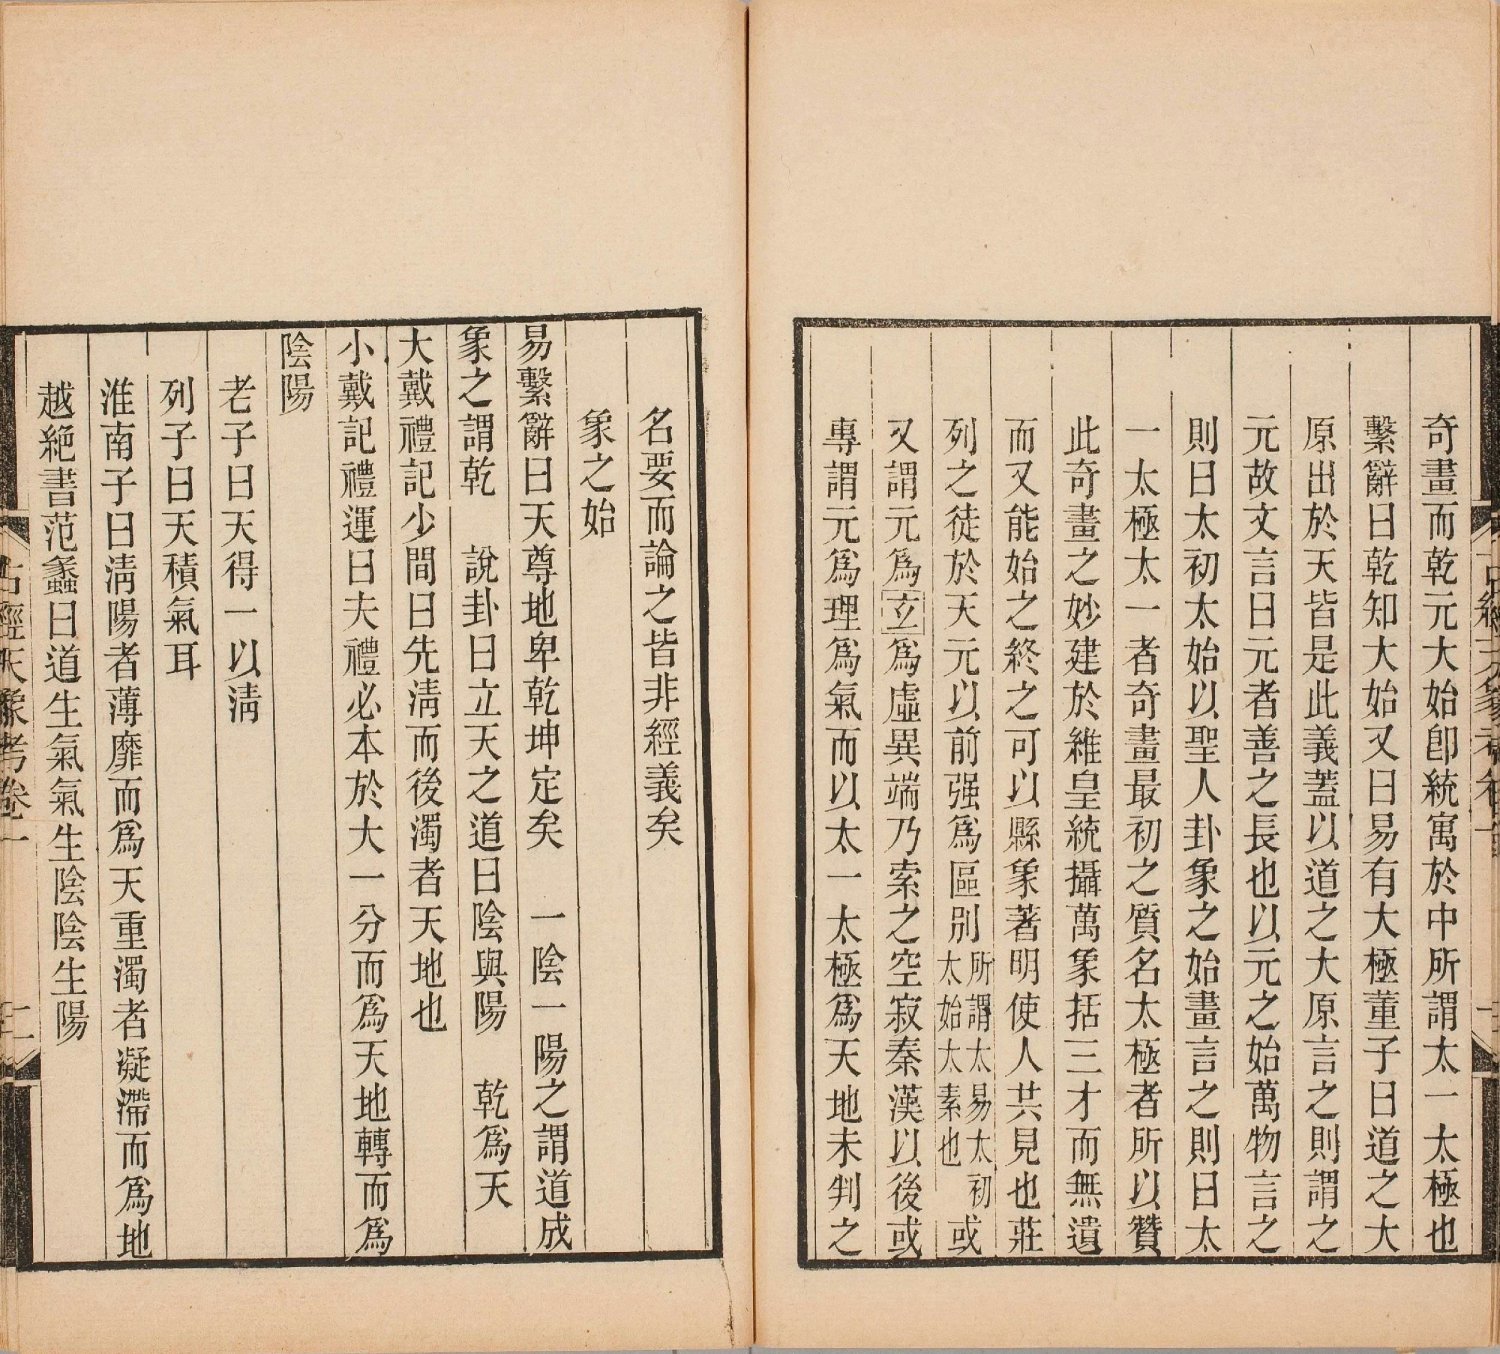 奇畫而乾元大始卽統寓於中所謂太一太極也
繫辭曰乾知大始又曰易有大極董子曰道之大
原出於天皆是此義蓋以道之大原言之則謂之
元故文言曰元者善之長也以元之始萬物言之
則曰太初太始以聖人卦象之始畫言之則曰太
一太極太一者奇畫最初之質名太極者所以贊
此奇畫之妙建於維皇統攝萬象括三才而無遺
而又能始之終之可以縣象著明使人共見也莊
列之徒於天元以前强爲區別所謂太易太初太始太素也或
又謂元爲玄爲虛異端乃索之空寂秦漢以後或
專謂元爲理爲氣而以太一太極爲天地未判之
名要而論之皆非經義矣
象之始
易繫辭曰天尊地卑乾坤定矣　一陰一陽之謂道成
象之謂乾　說卦曰立天之道曰陰與陽　乾爲天
大戴禮記少間曰先淸而後濁者天地也
小戴記禮運曰夫禮必本於大一分而爲天地轉而爲
陰陽
老子曰天得一以淸
列子曰天積氣耳
淮南子曰淸陽者薄靡而爲天重濁者凝滯而爲地
越絶書范蠡曰道生氣氣生陰陰生陽
古經天象考卷一
二